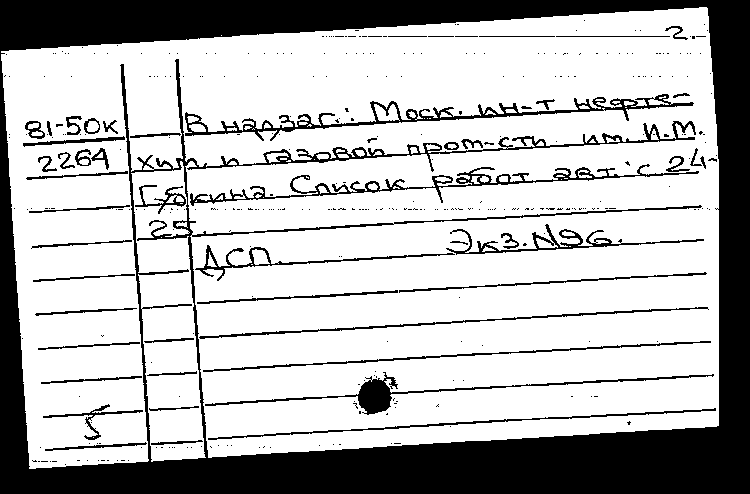 2.
81-50к В надзаг.: Моск. ин-т нефте-
2264 хим. и газовой пром-сти им. И.М.
Губкина. Список работ авт.: с 24-
25.
ДСП. Экз. N96.
5